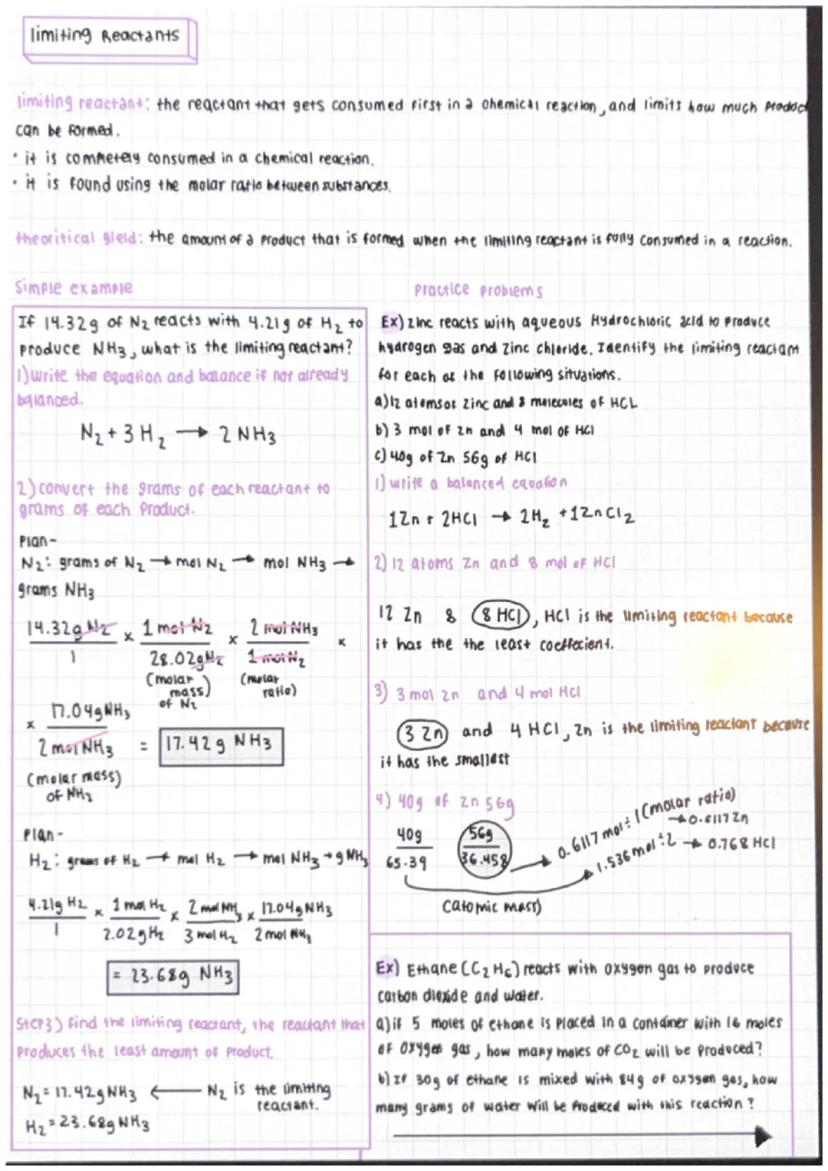 limiting Reactants
limiting reactant: the reactant that gets consumed first in a chemical reaction, and limits how much product
can be formed.
• it is completely consumed in a chemical reaction.
• it is found using the molar ratio between substances.
theoritical yield: the amount of a product that is formed when the limiting reactant is fully consumed in a reaction.
Simple example
If 14.32g of N2 reacts with 4.21g of H2 to
produce NH3, what is the limiting reactant?
1) write the equation and balance if not already
balanced.
N2 + 3H2 → 2 NH3
2) convert the grams of each reactant to
grams of each product.
Plan-
N2: grams of N2 → mol N2 → mol NH3 →
grams NH3
14.32g N2 / 1 × 1 mol N2 / 28.02g N2 × 2 mol NH3 / 1 mol N2 ×
(molar mass) of N2 (molar ratio)
× 17.04g NH3 / 2 mol NH3 = 17.42 g NH3
(molar mass)
of NH2
Plan-
H2: grams of H2 → mol H2 → mol NH3 → g NH3
4.21g H2 / 1 × 1 mol H2 / 2.02g H2 × 2 mol NH3 / 3 mol H2 × 17.04g NH3 / 2 mol NH3
= 23.68g NH3
Step3) find the limiting reactant, the reactant that
produces the least amount of product.
N2 = 17.42g NH3 ← N2 is the limiting
reactant.
H2 = 23.68g NH3
Practice problems
Ex) zinc reacts with aqueous Hydrochloric acid to produce
hydrogen gas and zinc chloride. Identify the limiting reactant
for each of the following situations.
a) 12 atoms of zinc and 8 molecules of HCL
b) 3 mol of zn and 4 mol of HCl
c) 40g of Zn 56g of HCl
1) write a balanced equation
1Zn + 2HCl → 2H2 + 1ZnCl2
2) 12 atoms Zn and 8 mol of HCl
12 Zn & 8 HCl, HCl is the limiting reactant because
it has the the least coeffecient.
3) 3 mol zn and 4 mol HCl
3 Zn and 4 HCl, Zn is the limiting reactant because
it has the smallest
4) 40g of Zn 56g
40g / 65.39 56g / 36.458 → 0.6117 mol ÷ 1 (molar ratio) → 0.6117 Zn
→ 1.536 mol ÷ 2 → 0.768 HCl
(atomic mass)
Ex) Ethane (C2H6) reacts with oxygen gas to produce
carbon dioxide and water.
a) if 5 moles of ethane is placed in a container with 16 moles
of oxygen gas, how many moles of CO2 will be produced?
b) If 30g of ethane is mixed with 84g of oxygen gas, how
many grams of water will be produced with this reaction?